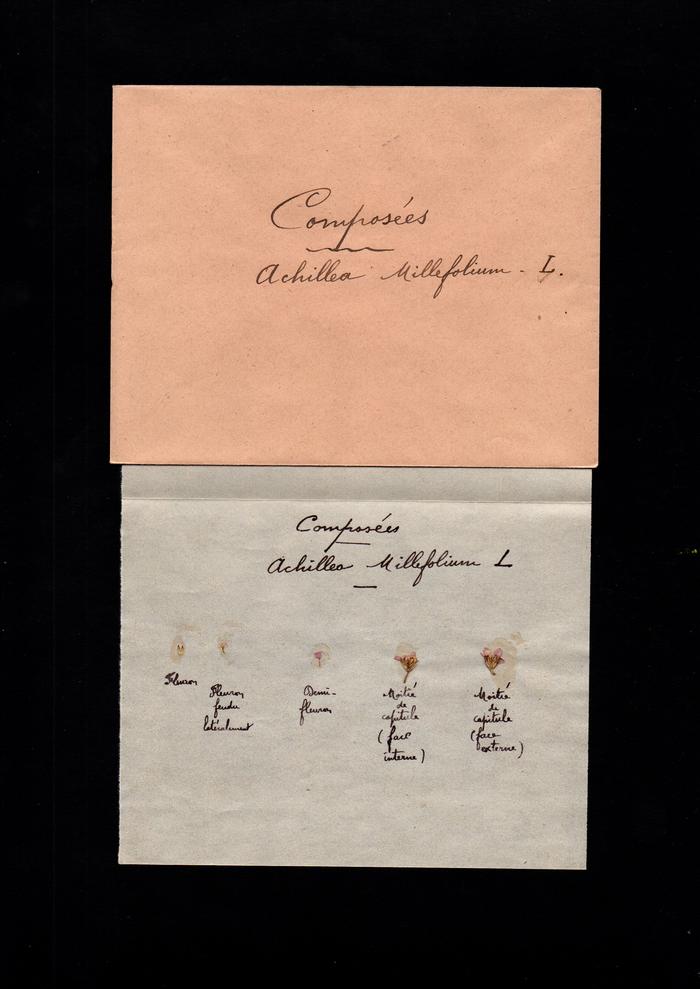 Composées
Achillea Millefolium - L.
Composées
Achillea Millefolium L
Fleuron
Fleuron
fendu
latéralement
Demi-
fleuron
Moitié
de
capitule
(face
interne)
Moitié
de
capitule
(face
externe)